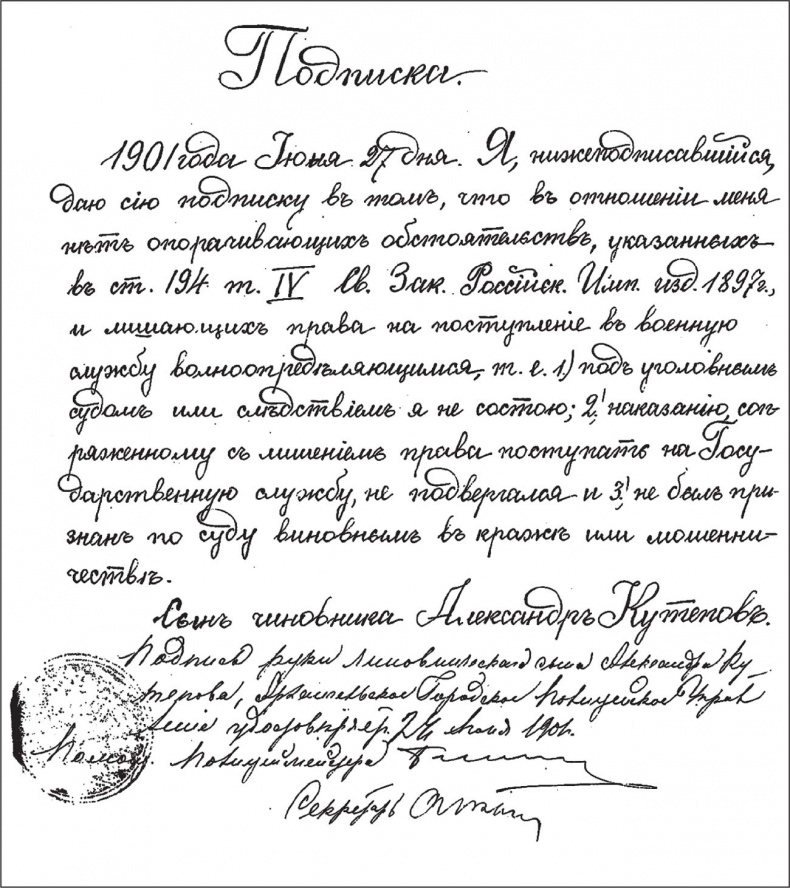 Подписка.
1901 года Іюня 27 дня. Я, нижеподписавшійся,
даю сію подписку въ томъ, что въ отношеніи меня
нѣтъ опорачивающихъ обстоятельствъ, указанныхъ
въ ст. 194 т. IV Св. Зак. Россійск. Имп. изд. 1897 г.,
и лишающихъ права на поступленіе въ военную
службу вольноопредѣляющимся, т. е. 1) подъ уголовнымъ
судомъ или слѣдствіемъ я не состою; 2) наказанію, соп-
ряженному съ лишеніемъ права поступать на Госу-
дарственную службу, не подвергался и 3) не былъ при-
знанъ по суду виновнымъ въ кражѣ или мошенни-
чествѣ.
Сынъ чиновника Александръ Кутеповъ.
Подпись руки чиновническаго сына Александра Ку
тепова, Архангельское Городское Полицейское Управ
леніе удостовѣряетъ. 1901.
Полицмейстера
Секретарь